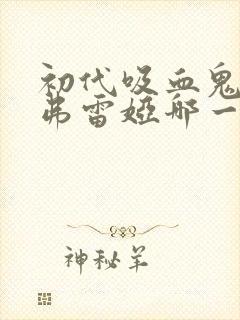 初代吸血鬼
弗雷娅那一
神秘羊